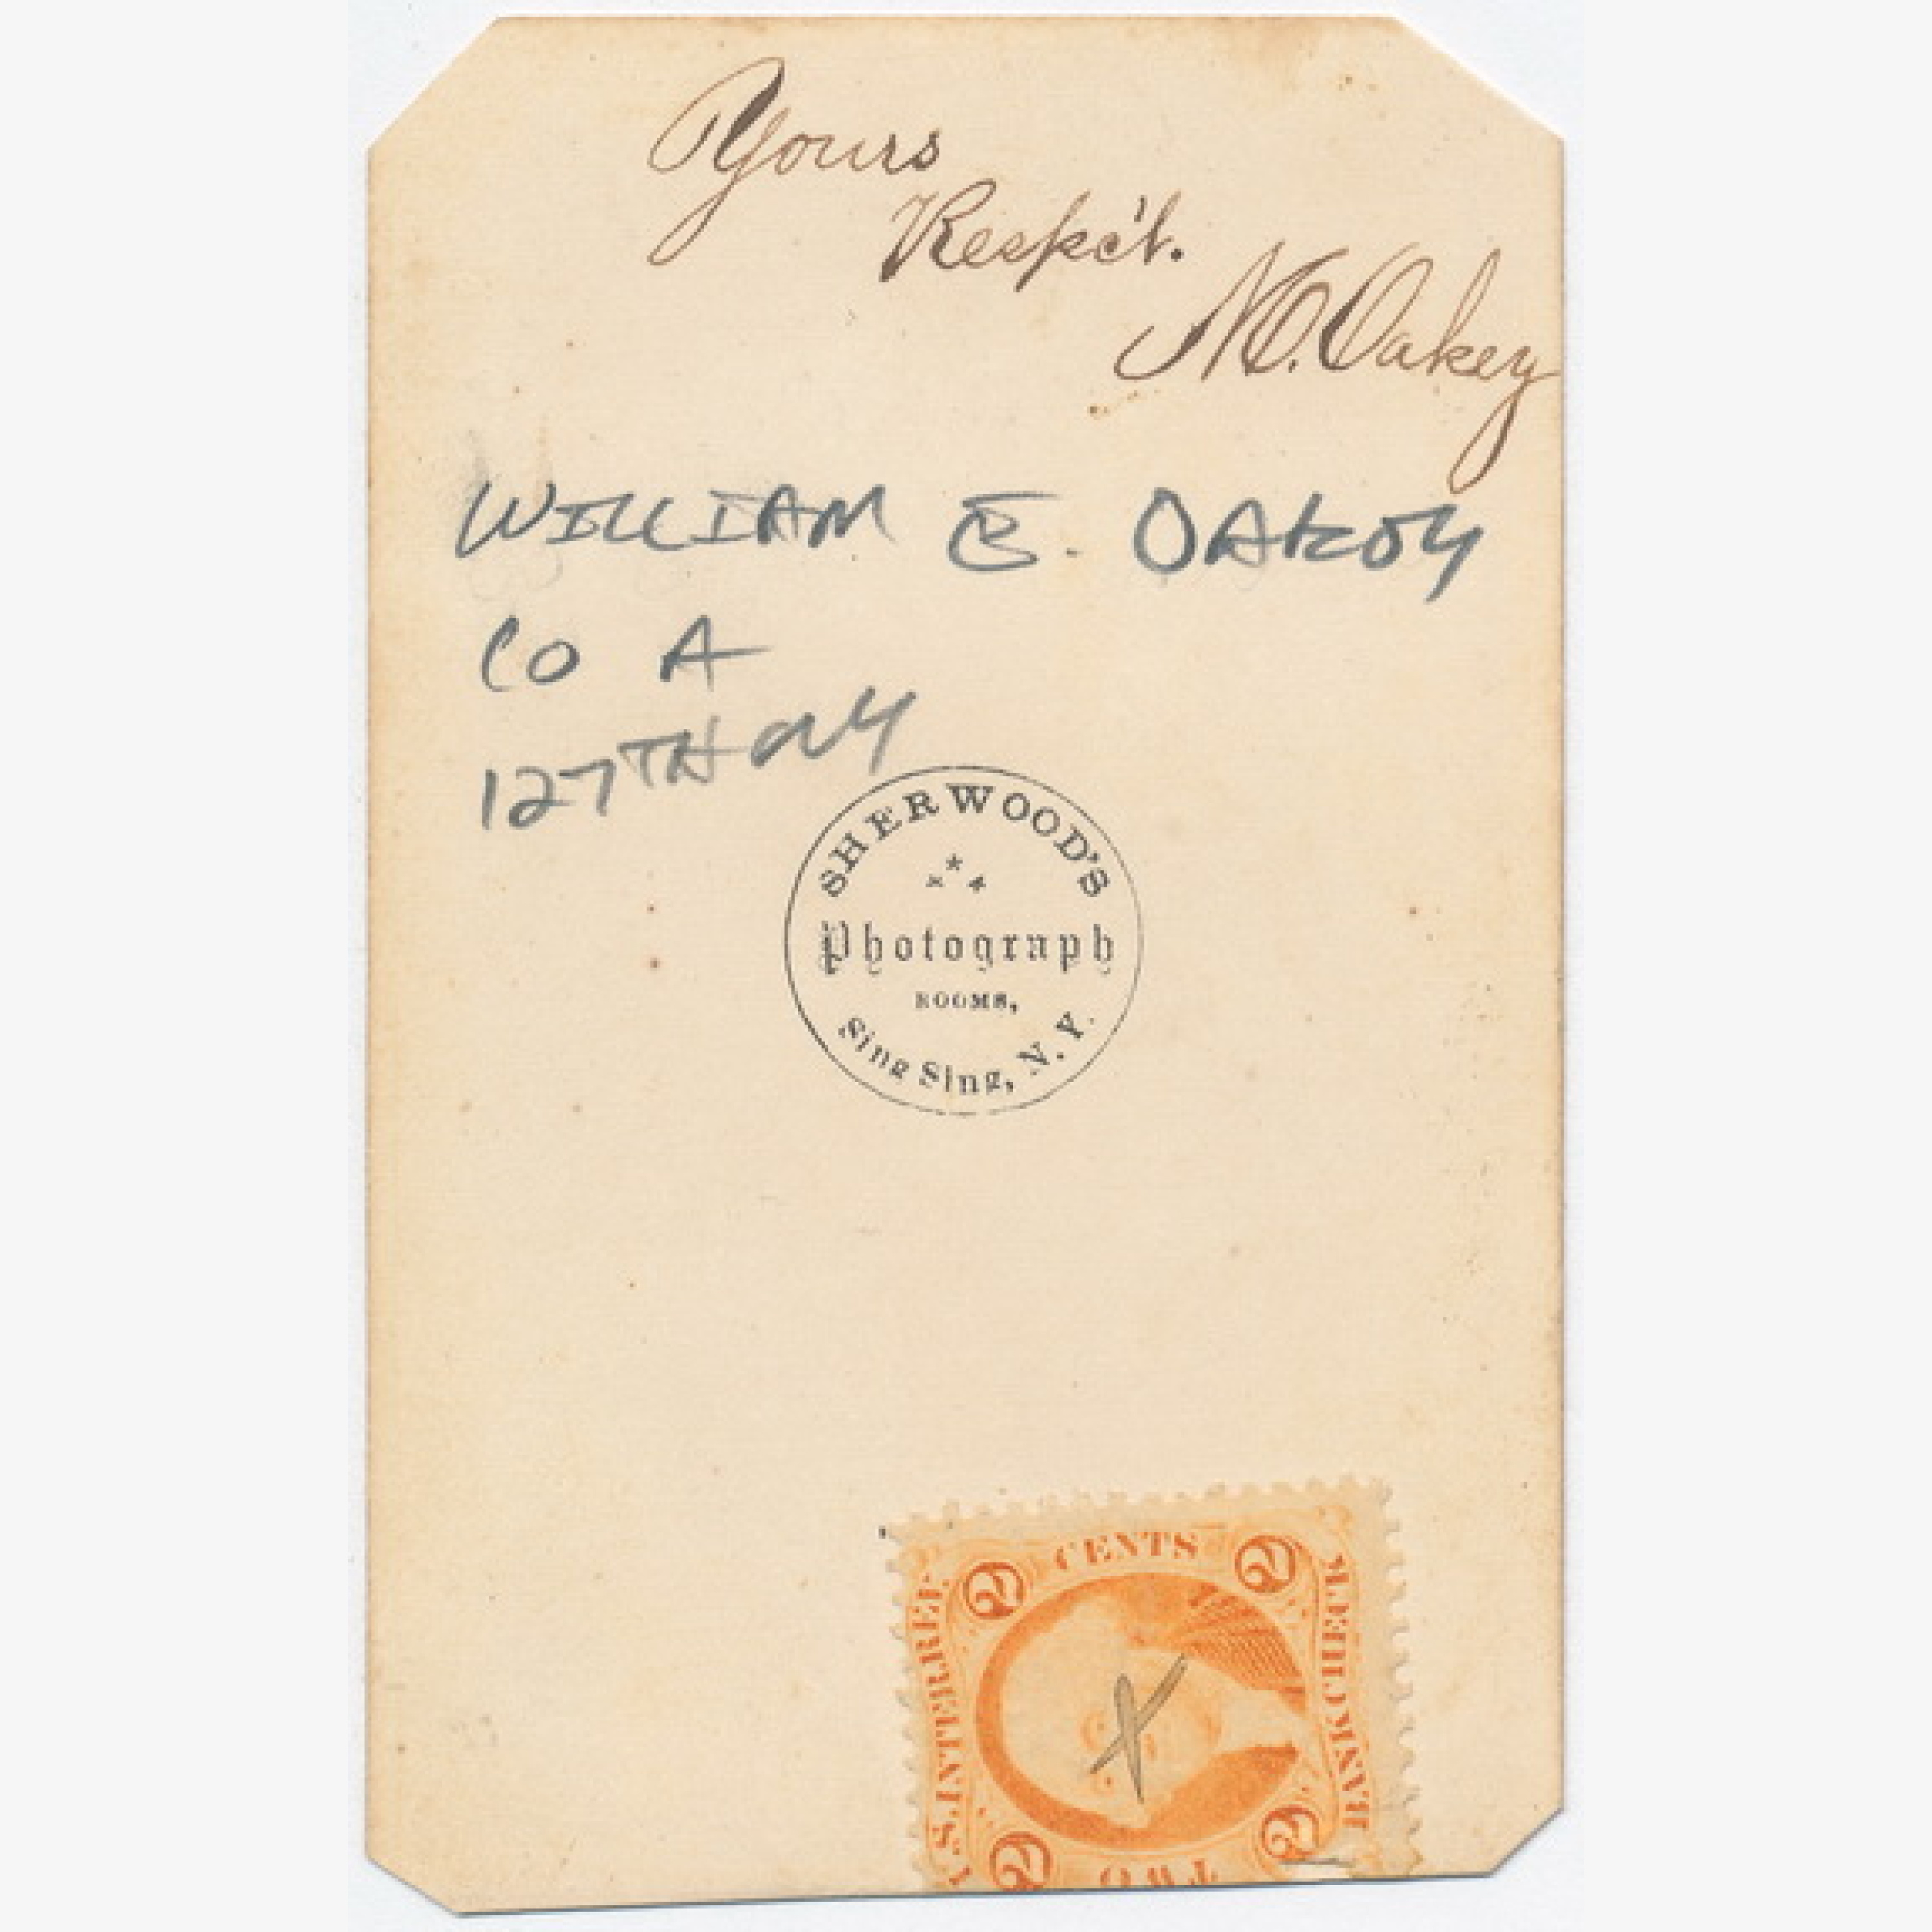 Yours
Respc't.
W. Oakey
WILLIAM E. OAKEY
CO A
127TH NY
SHERWOOD'S
Photograph
ROOMS,
Sing Sing, N. Y.
CENTS
2 2
U.S. INTER.REV.
BANK CHECK
2 2
TWO
X